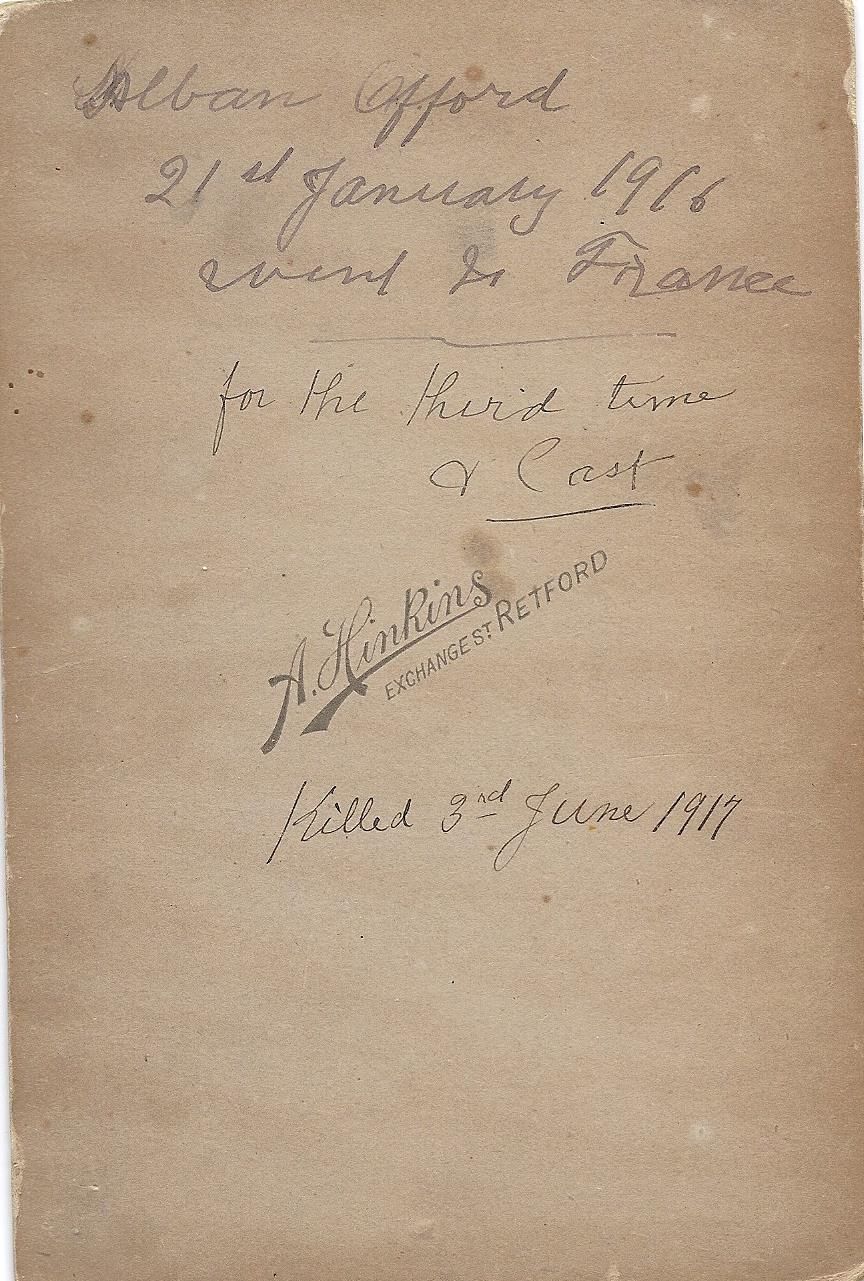 Alban Offord
21st January 1916
went to France
for the third time
& Last
A. Hinkins
EXCHANGE ST. RETFORD
Killed 3rd June 1917